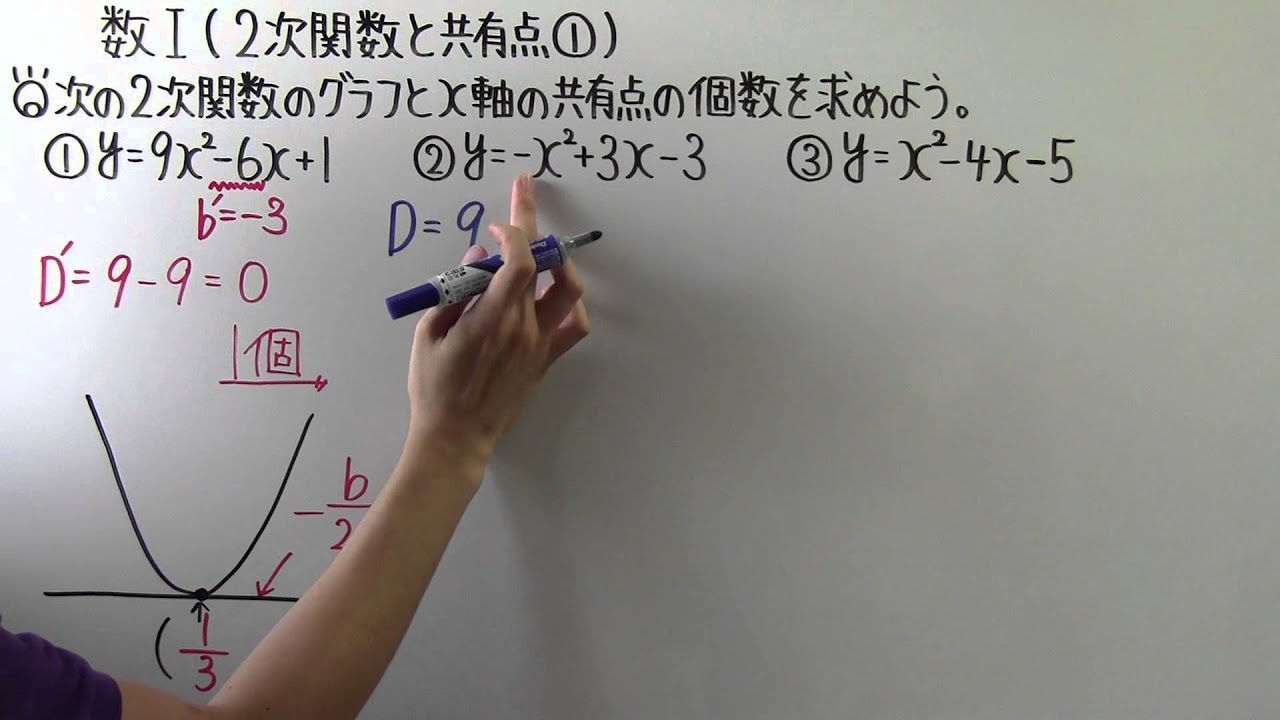 数I(2次関数と共有点①)
次の2次関数のグラフとx軸の共有点の個数を求めよう。
①y=9x²-6x+1 ②y=-x²+3x-3 ③y=x²-4x-5
b'=-3
D'=9-9=0
1個
D=9
-b/2
(1/3
Pentel